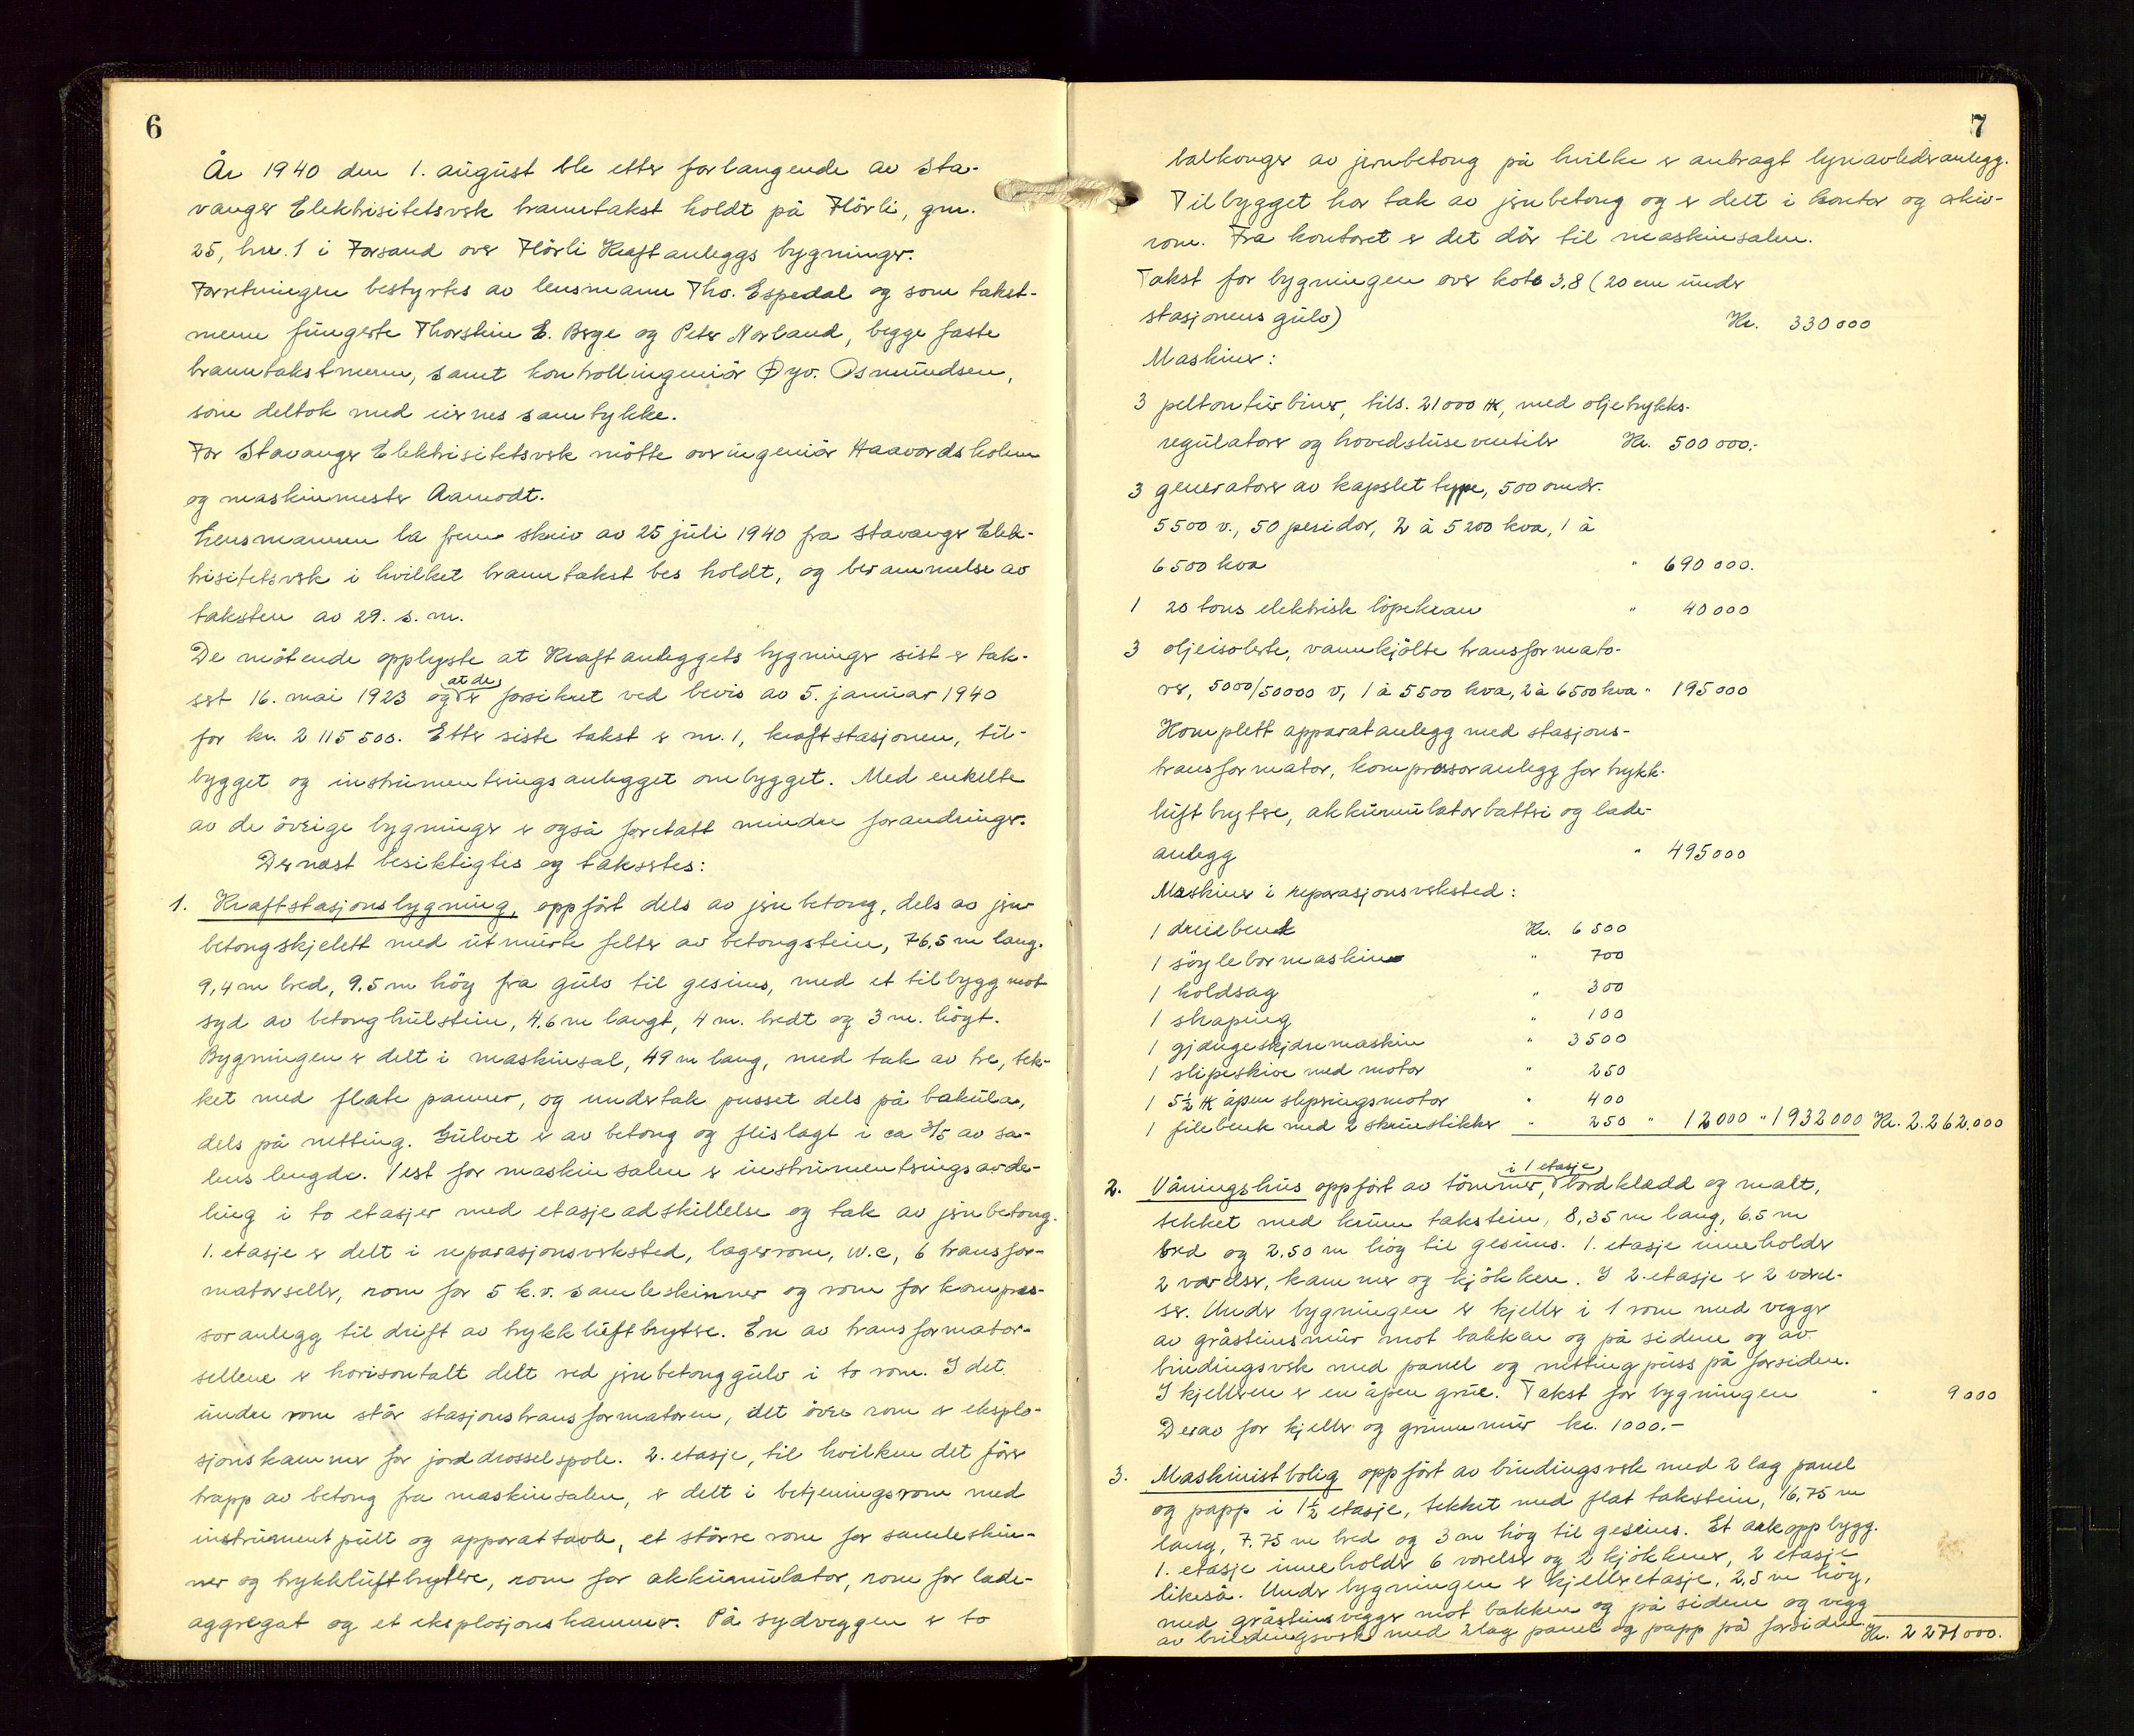 6
År 1940 den 1. august ble etter forlangende av Sta-
vanger Elektrisitetsverk branntakst holdt på Flörli, gnr.
25, bnr. 1 i Forsand over Flörli Kraftanleggs bygninger.
Forretningen bestyrtes av lensmann Tho. Espedal og som takst-
menn fungerte Thorstein E. Berge og Peter Norland, begge faste
branntakstmenn, samt kontrollingeniör Øyv. Osmundsen,
som deltok med eiernes samtykke.
For Stavanger Elektrisitetsverk mötte overingeniör Haavardsholm
og maskinmester Aamodt.
Lensmannen la frem skriv av 25 juli 1940 fra Stavanger Elek-
trisitetsverk i hvilket branntakst bes holdt, og berammelse av
taksten av 29. s. m.
De mötende opplyste at Kraftanleggets bygninger sist er tak-
sert 16. mai 1923 og at de er forsikret ved bevis av 5. januar 1940
for kr. 2 115 500. Etter siste takst er nr. 1, kraftstasjonen, til-
bygget og instrumenteringsanlegget ombygget. Med enkelte
av de övrige bygninger er også foretatt mindre forandringer.
Dernæst besiktigtes og taksertes:
1. Kraftstasjonsbygning, oppfört dels av jernbetong, dels av jern-
betongskjelett med utmurte felter av betongstein, 76,5 m lang,
9,4 m bred, 9.5 m höy fra gulv til gesims, med et tilbygg mot
syd av betonghulstein, 4.6 m langt, 4 m. bredt og 3 m. höyt.
Bygningen er delt i maskinsal, 49 m lang, med tak av tre, tek-
ket med flate panner, og undertak pusset dels på bakula,
dels på netting. Gulvet er av betong og flislagt i ca 3/5 av sa-
lens lengde. Vest for maskinsalen er instrumenteringsavde-
ling i to etasjer med etasjeadskillelse og tak av jernbetong.
1. etasje er delt i reparasjonsverksted, lagerrom, W.C, 6 transfor-
matorceller, rom for 5 k.v. samleskinner og rom for kompres-
soranlegg til drift av trykkluftbrytere. En av transformator-
cellene er horisontalt delt ved jernbetonggulv i to rom. I det
undre rom står stasjonstransformatoren, det övre rom er eksplo-
sjonskammer for jorddrosselspole. 2. etasje, til hvilken det förer
trapp av betong fra maskinsalen, er delt i betjeningsrom med
instrumentpult og apparattavle, et större rom for samleskin-
ner og trykkluftbrytere, rom for akkumulator, rom for lade-
aggregat og et eksplosjonskammer. På sydveggen er to
7
balkonger av jernbetong på hvilke er anbragt lynavlederanlegg.
Tilbygget har tak av jernbetong og er delt i kontor og arkiv-
rom. Fra kontoret er det dör til maskinsalen.
Takst for bygningen over kote 3,8 (20 cm under
stasjonens gulv) Kr. 330 000
Maskiner:
3 peltonturbiner, tils. 21000 HK, med oljetrykks-
regulatorer og hovedsluseventiler Kr. 500 000.-
3 generatorer av kapslet type, 500 omdr.
5500 v., 50 perioder, 2 à 5200 kva, 1 à
6500 kva " 690 000.
1 20 tons elektrisk löpekran " 40 000
3 oljeisolerte, vannkjölte transformato-
rer, 5000/50000 v, 1 à 5500 kva, 2 à 6500 kva " 195 000
Komplett apparatanlegg med stasjons-
transformator, kompressoranlegg for trykk-
luftbrytere, akkumulatorbatteri og lade-
anlegg " 495 000
Maskiner i reparasjonsverksted:
1 dreiebenk Kr. 6 500
1 söyleboremaskine " 700
1 koldsag " 300
1 shaping " 100
1 gjengeskjæremaskin " 3500
1 slipeskive med motor " 250
1 5½ HK åpen slepringsmotor " 400
1 filebenk med 2 skruestikker " 250 " 12000 " 1932000 Kr. 2.262.000
2. Våningshus oppfört av tömmer, i 1 etasje, bordkledd og malt,
tekket med krum takstein, 8,35 m lang, 6.5 m
bred og 2.50 m höy til gesims. 1. etasje inneholder
2 værelser, kammer og kjökken. I 2. etasje er 2 værel-
ser. Under bygningen er kjeller i 1 rom med vegger
av gråsteinsmur mot bakken og på sidene og av
bindingsverk med panel og nettingpuss på forsiden.
I kjelleren er en åpen grue. Takst for bygningen " 9 000
Derav for kjeller og grunnmur kr. 1000.-
3. Maskinistbolig oppfört av bindingsverk med 2 lag panel
og papp i 1½ etasje, tekket med flat takstein, 16,75 m
lang, 7.75 m bred og 3 m höy til gesims. Et arkoppbygg.
1. etasje inneholder 6 værelser og 2 kjökkener, 2 etasje
likeså. Under bygningen er kjelleretasje, 2,5 m höy,
med gråsteinsvegger mot bakken og på sidene og vegg
av bindingsverk med 2 lag panel og papp på forsiden.
Kr. 2 271 000.